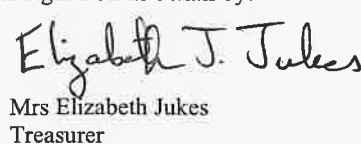 Elizabeth J. Jukes
Mrs Elizabeth Jukes
Treasurer